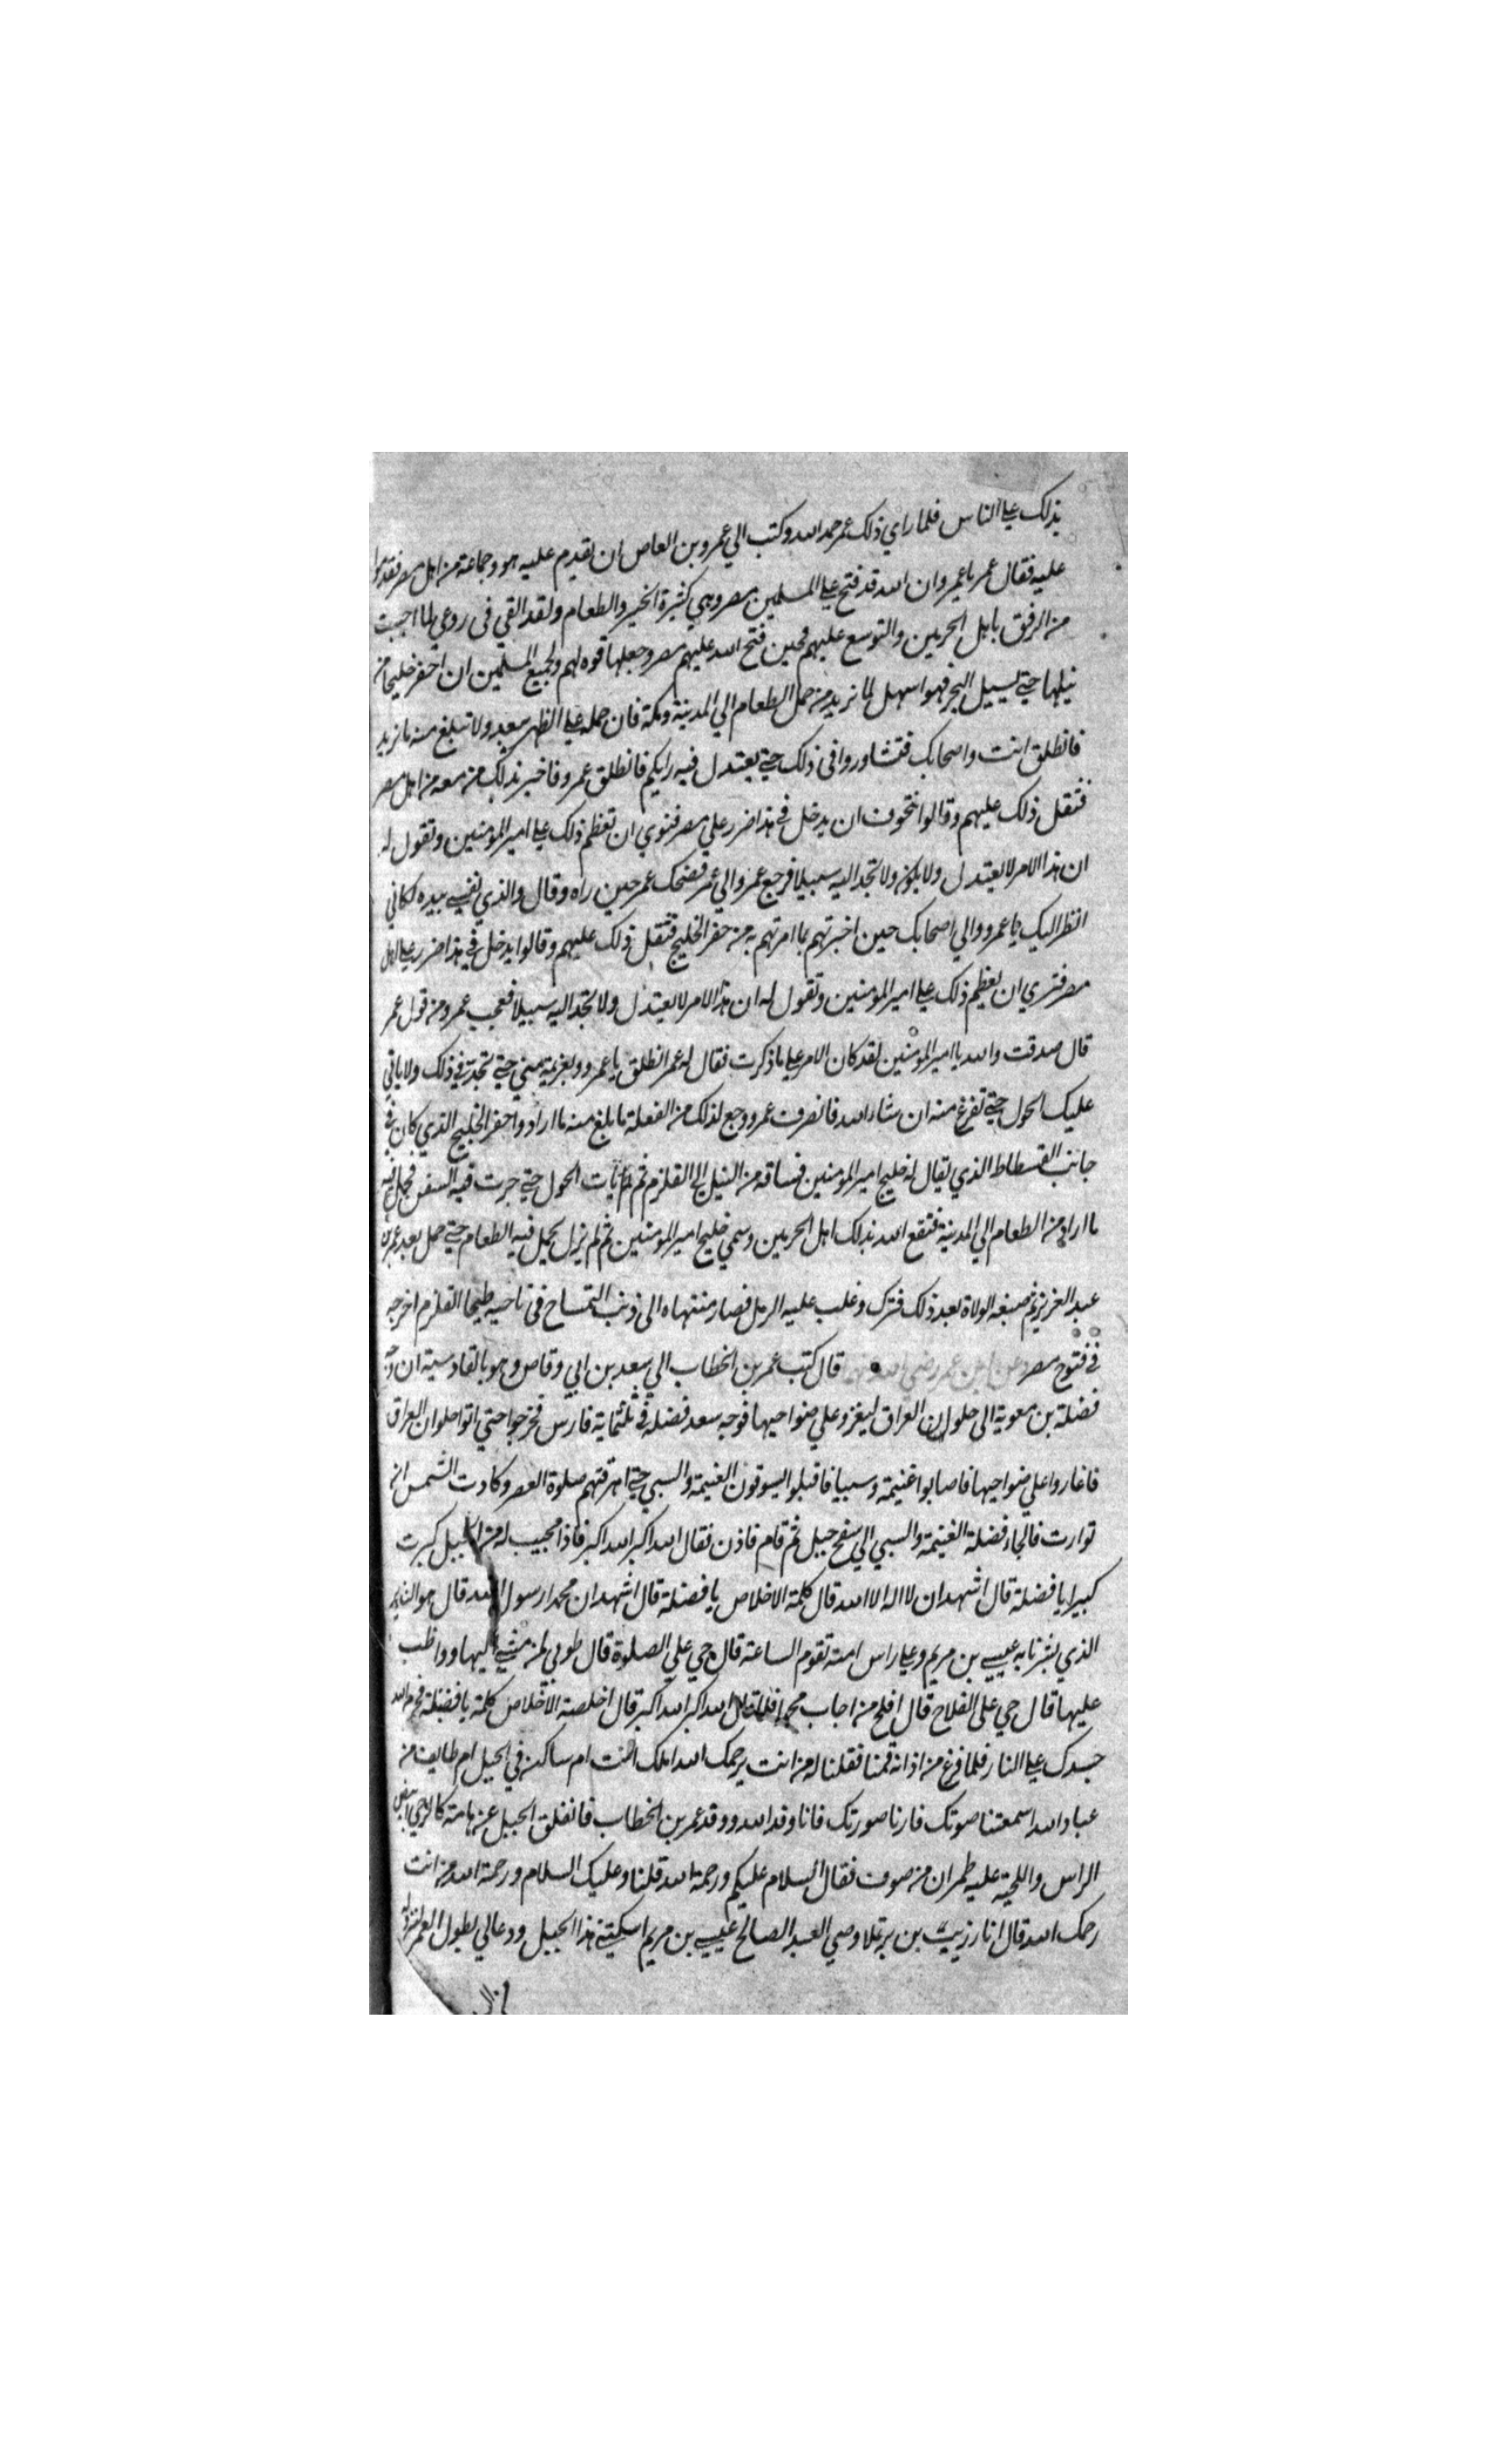 بذلك علي الناس فلما راي ذلك عمر حمد الله وكتب الي عمرو بن العاص ان يقدم عليه هو وجماعة من اهل مصر فقدموا
عليه فقال عمر يا عمرو ان الله قد فتح علي المسلمين مصر وهي كثيرة الخير والطعام ولقد القي في روعي لما احببت
من الرفق باهل الحرمين والتوسع عليهم فحين فتح الله عليهم مصر وجعلها قوه لهم ولجميع المسلمين ان احفر خليجا من
نيلها حتي يسيل البحر فهو اسهل لما نريد من حمل الطعام الي المدينة ومكة فان حمله علي الظهر يبعد ولا تبلغ منه ما نريد
فانطلق انت واصحابك فتشاوروا في ذلك حتي يعتدل فيه رايكم فانطلق عمرو فاخبر بذلك من معه من اهل مصر
فثقل ذلك عليهم وقالوا نتخوف ان يدخل في هذا ضرر علي مصر فنري ان تعظم ذلك علي امير المؤمنين وتقول له
ان هذا الامر لا يعتدل ولا يكون ولا تجد اليه سبيلا فرجع عمرو الي عمر فضحك عمر حين راه وقال والذي نفسي بيده لكاني
انظر اليك يا عمرو والي اصحابك حين اخبرتهم بما امرتهم به من حفر الخليج فثقل ذلك عليهم وقالوا يدخل في هذا ضرر علي اهل
مصر فنري ان يعظم ذلك علي امير المؤمنين وتقول له ان هذا الامر لا يعتدل ولا تجد اليه سبيلا فعجب عمرو من قول عمر
قال صدقت والله يا امير المؤمنين لقد كان الامر علي ما ذكرت فقال له عمر انطلق يا عمرو وبعزيمة مني حتي تجد في ذلك ولا ياتي
عليك الحول حتي تفرغ منه ان شاء الله فانصرف عمرو وجمع لذلك من الفعلة ما بلغ منه ما اراد واحفر الخليج الذي كان في
جانب الفسطاط الذي يقال له خليج امير المؤمنين فساقه من النيل الي القلزم ثم لم يات الحول حتي جرت فيه السفن فحمل فيه
ما اراد من الطعام الي المدينة فنفع الله بذلك اهل الحرمين وسمي خليج امير المؤمنين ثم لم يزل يحمل فيه الطعام حتي حمل بعد عمر بن
عبد العزيز ثم ضيعه الولاة بعد ذلك فترك وغلب عليه الرمل فصار منتهاه الي ذنب التمساح في ناحيه طيحا القلزم اخرجه
في فتوح مصر وعن ابن عمر رضي الله عنهما قال كتب عمر بن الخطاب الي سعد بن ابي وقاص وهو بالقادسية ان وجه
فضلة بن معوية الي حلوان العراق ليغزو علي ضواحيها فوجه سعد فضله في ثلثماية فارس فخرجوا حتي اتوا حلوان العراق
فاغاروا علي ضواحيها فاصابوا غنيمة وسبيا فاقبلوا يسوقون الغنيمة والسبي حتي ارهقتهم صلوة العصر وكادت الشمس ان
توارت فالجاء فضلة الغنيمة والسبي الي سفح جبل ثم قام فاذن فقال الله اكبر الله اكبر فاذا مجيب له من الجبل كبرت
كبيرا يا فضلة قال اشهد ان لا اله الا الله قال كلمة الاخلاص يا فضلة قال اشهد ان محمدا رسول الله قال هو النذير
الذي بشرنا به عيسي بن مريم وعلي راس امته تقوم الساعة قال حي علي الصلوة قال طوبي لمن مشي اليها وواظب
عليها قال حي علي الفلاح قال افلح من اجاب محمدا فلما قال الله اكبر الله اكبر قال اخلصة الاخلاص كلمة يا فضلة فحرم الله
جسدك علي النار فلما فرغ من اذانه قمنا فقلنا له من انت يرحمك الله املك انت ام ساكن في الجبل ام طايف من
عباد الله اسمعتنا صوتك فارنا صورتك فانا وفد الله ووفد عمر بن الخطاب فانفلق الجبل عن هامة كالرحي ابيض
الراس واللحية عليه طمران من صوف فقال السلام عليكم ورحمة الله قلنا وعليك السلام ورحمة الله من انت
رحمك الله قال انا رزيب بن برتملا وصي العبد الصالح عيسي بن مريم اسكنني هذا الجبل ودعا لي بطول العمر الي نزوله
من السـ